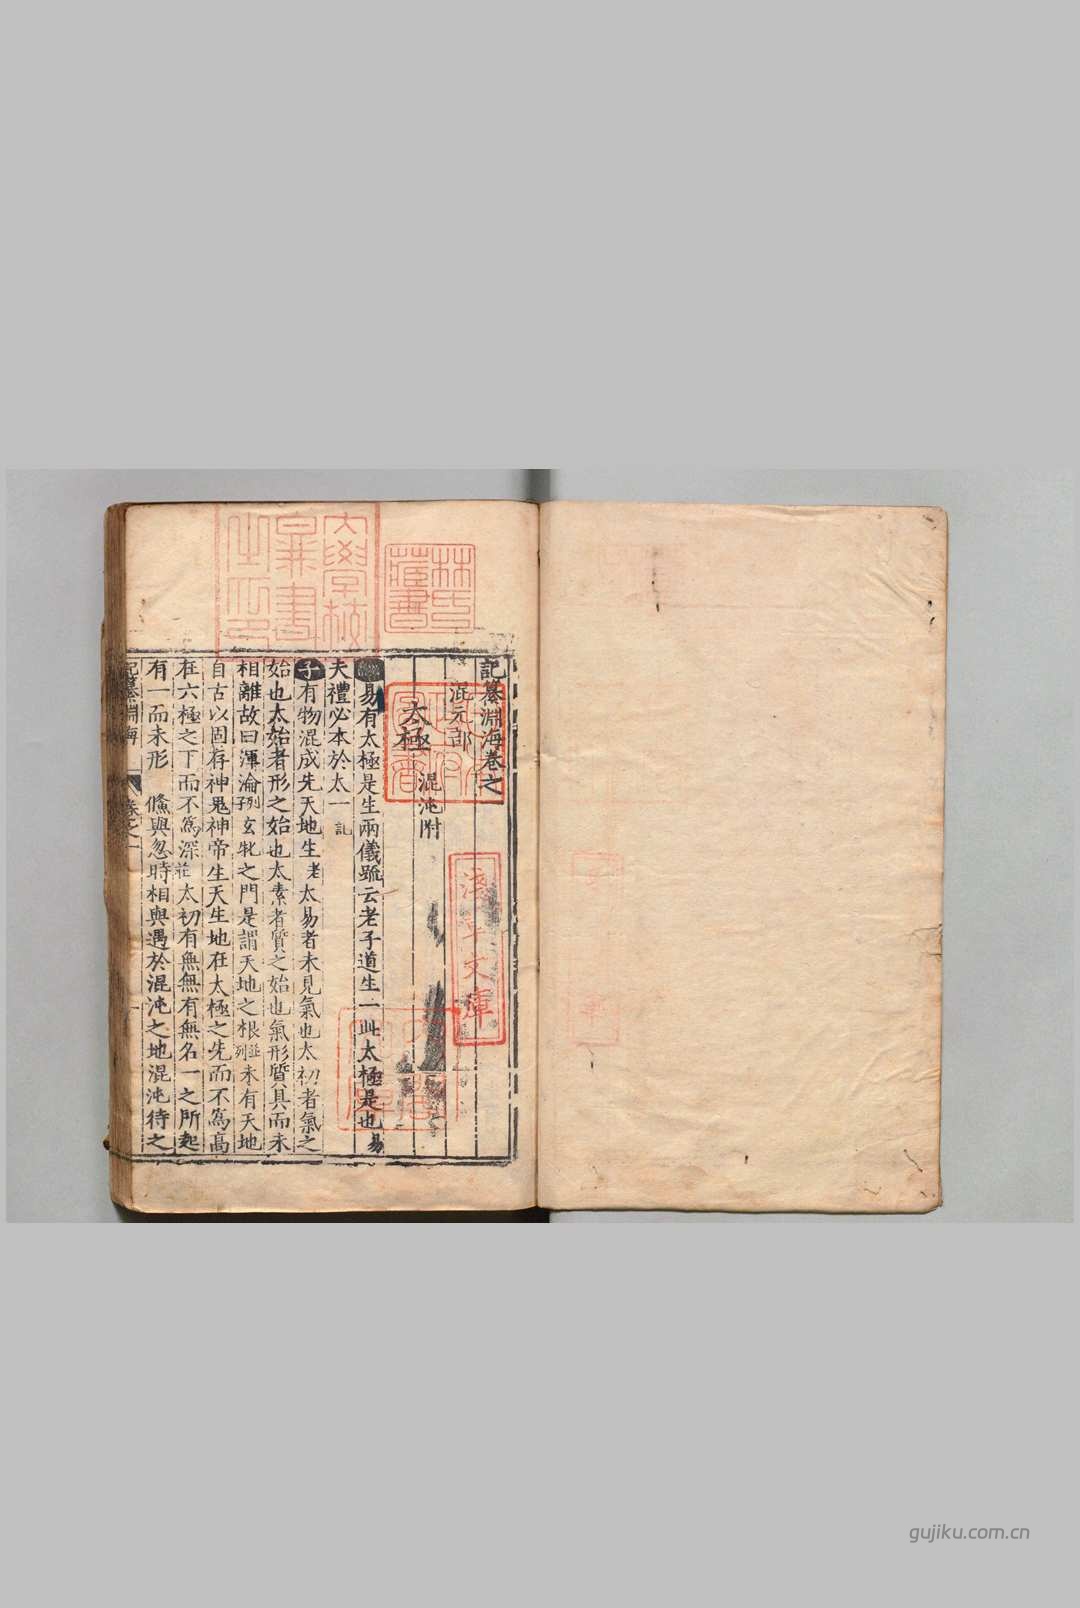 記纂淵海卷之
混元部
太極
混沌附
易有太極是生兩儀疏云老子道生一此太極是也易
夫禮必本於太一記
子有物混成先天地生老太易者未見氣也太初者氣之
始也太始者形之始也太素者質之始也氣形質具而未
相離故曰渾淪列子玄牝之門是謂天地之根並列未有天地
自古以固存神鬼神帝生天生地在太極之先而不為高
在六極之下而不為深莊太初有無無有無名一之所起
有一而未形 儵與忽時相與遇於混沌之地混沌待之
記纂淵海 卷之一
林氏藏書
大學校圖書之印
淺草文庫
gujiku.com.cn